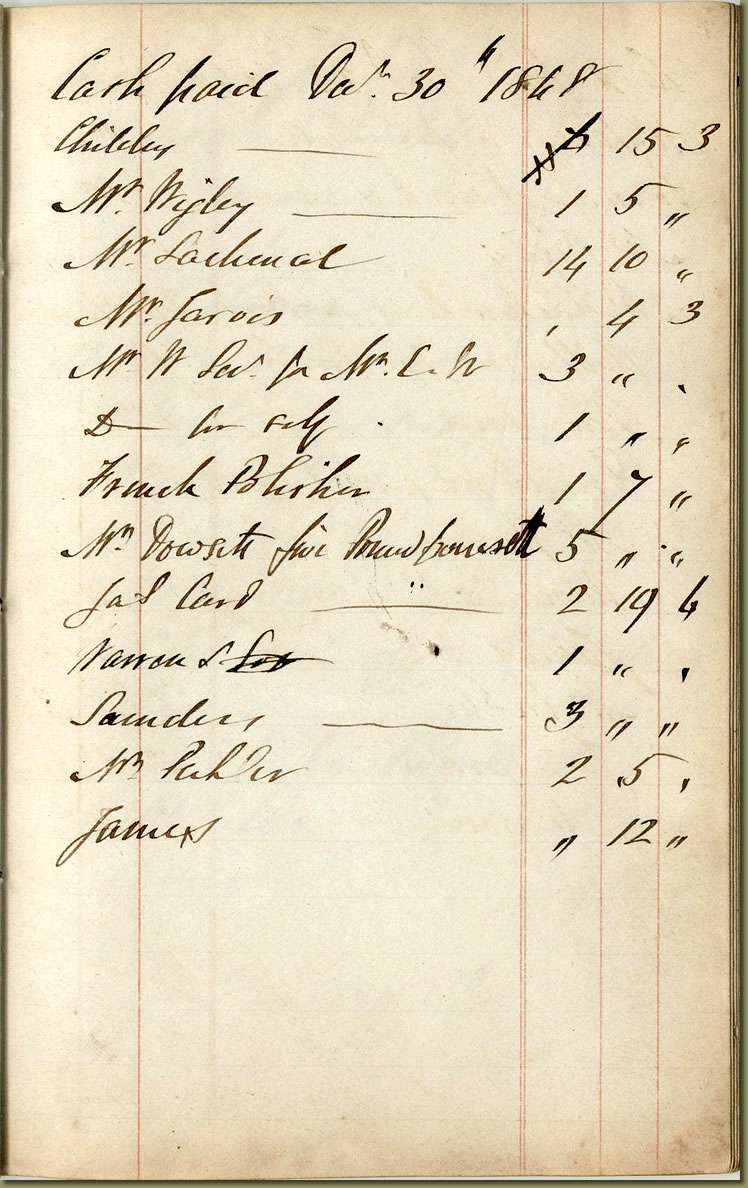 Cash paid Decr. 30th 1848
Chibley 6 15 3
Mr. Wigley 1 5 "
Mr. Lachenal 14 10 "
Mr. Jarvis , 4 3
Mr W for Mr. C. W 3 " .
Do for self 1 " "
French Polisher 1 7 "
Mr. Dowsett five 5 " "
Jas Card " 2 19 6
Warren & 1 " .
Saunders 3 " "
Mr 2 5 .
James " 12 "